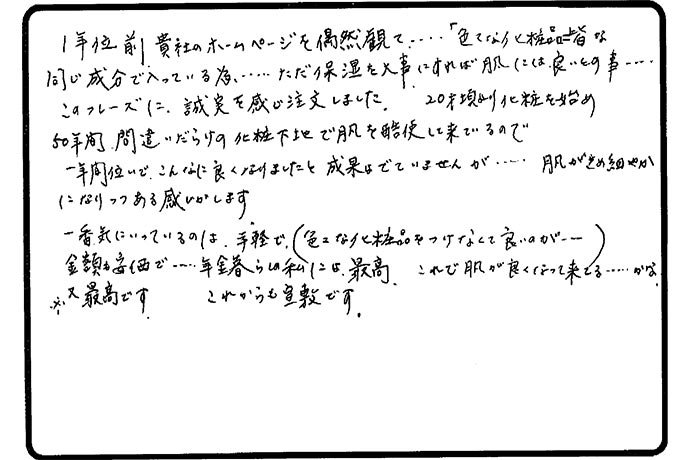 1年位前、貴社のホームページを偶然観て‥‥「色々な化粧品皆な
同じ成分で入っている為、‥‥ただ保湿を大事にすれば肌には良いとの事‥‥
このフレーズに、誠実を感じ注文しました。 20才頃より化粧を始め
50年間、間違いだらけの化粧下地で肌を酷使して来ているので
一年間位いで、こんなに良くなりましたと成果はでていませんが‥‥ 肌がきめ細やか
になりつつある感じがします
一番気にいっているのは、手軽で、(色々な化粧品をつけなくて良いのが‥‥)
金額も安価で‥‥年金暮らしの私には、最高、 これで肌が良くなって来てる‥‥かな
※又最高です これからも宜敷です。